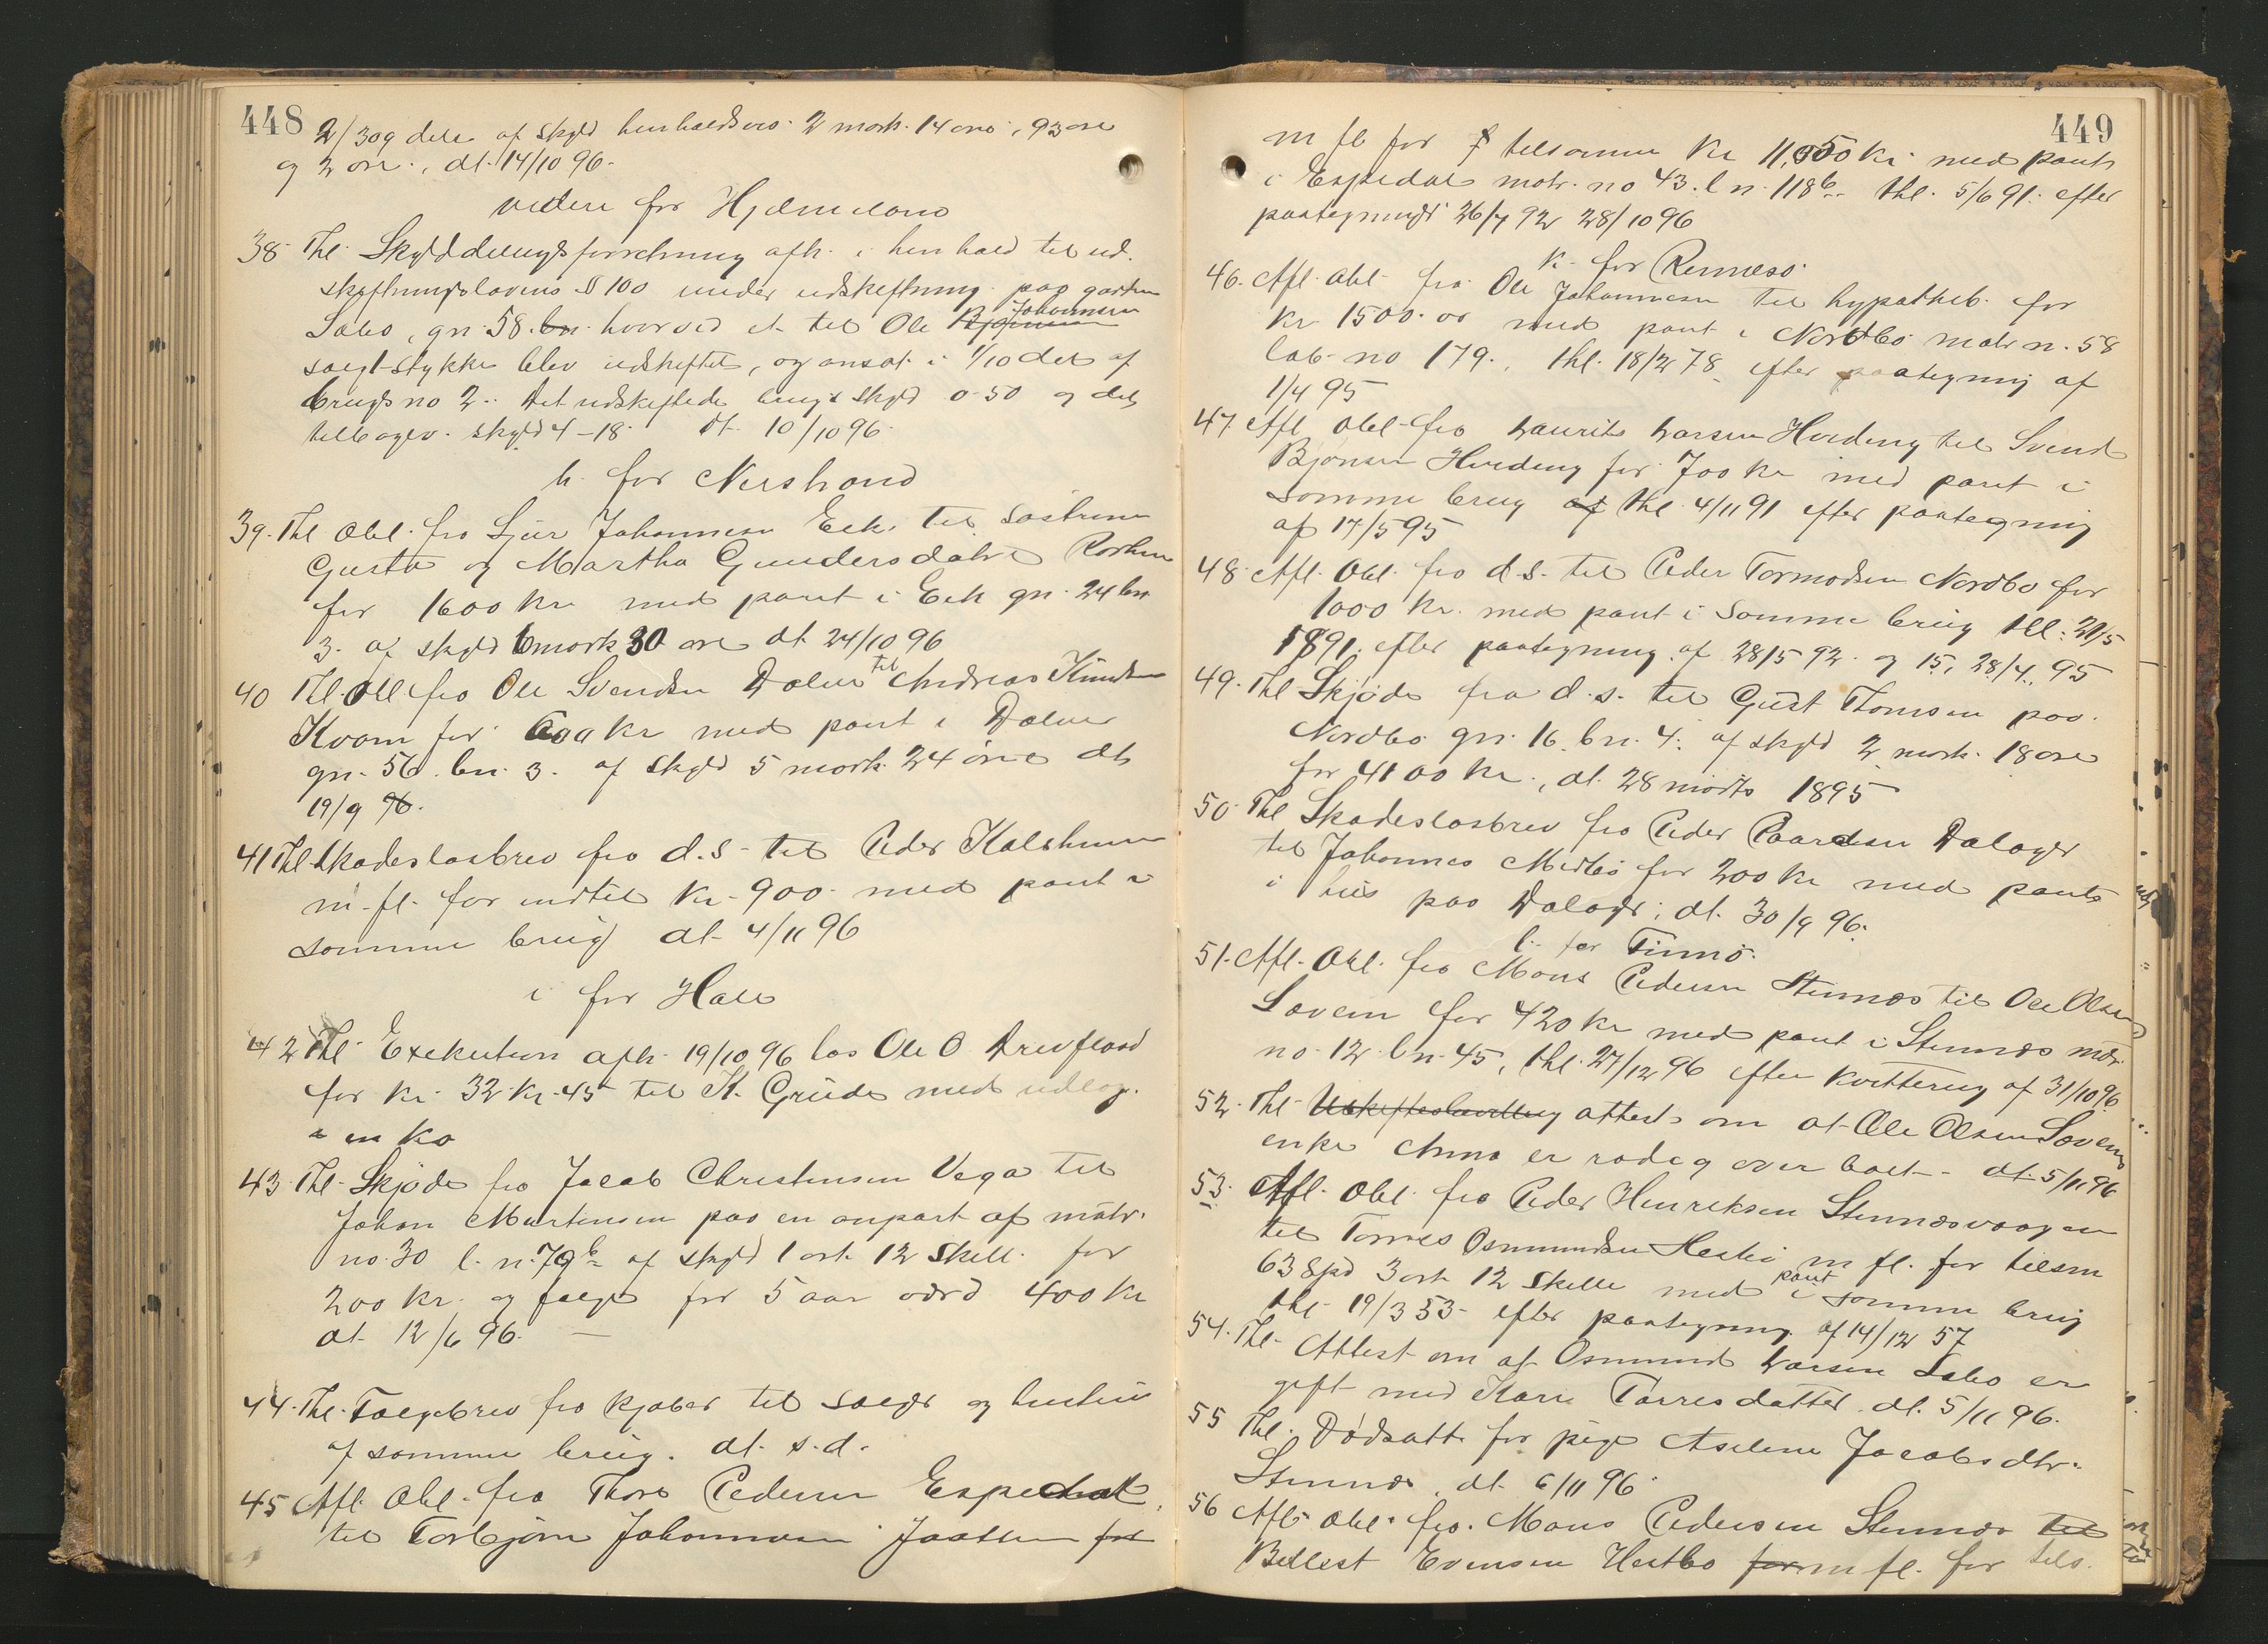 448
2/309 dele af skyld henholdsvis 2 mark 14 öre, 93 öre
og 2 öre, dt. 14/10 96.
videre for Hjelmeland
38. Thl. Skylddelingsforretning afh. i henhold til ud.
skiftningslovens § 100 under udskiftning paa gaarden
Sabø, gn. 58. bn. hvorved et til Ole Johannesen
solgt stykke blev udskiftet, og ansat i 1/10 del af
brugs no 2. Det udskiftede brugs skyld 0-50 og det
tilbagev. skyld 4-18. dt. 10/10 96
h. for Nerstrand
39. Thl. Obl. fra Sjur Johannesen Eek til söstrene
Gurta og Martha Gundersdatre
for 1600 kr. med pant i Eek gn. 24 bn
3. af skyld 6 mark 30 öre dt 24/10 96
40 Thl. Obl fra Ole Svendsen Dalen til Andreas Knudsen
Kvam for 600 kr med pant i Dalen
gn. 56. bn. 3. af skyld 5 mark 24 öre dt
19/9 96.
41 Thl. Skadeslösbrev fra d.s. til Peder Kalsheim
m. fl. for indtil Kr. 900 med pant i
samme brug dt 4/11 96
i for Hale
42 Thl. Exekution afh. 19/10 96 hos Ole O. Drevflaad
for kr. 32 kr. 45 til K. Grüde med udlæg
i en ko
43. Thl. Skjöde fra Jacob Christensen Vega til
Johan Martensen paa en anpart af matr.
no. 30 l. n. 79 b af skyld 1 ort 12 Skill. for
200 kr. og folge for 5 aar værd 400 kr
dt 12/6 96. —
44. Thl. Folgebrev fra kjöber til sælger og hustru
af samme brug. dt. s.d.
45 Afl. Obl. fra Thore Pedersen Espedal
til Torbjörn Johannesen Jaatten for
449
m fl for tilsammen Kr 11,050 kr. med pant
i Espedal matr. no 43. l n. 118 b. thl. 5/6 91. efter
paategninger 26/7 92 28/10 96
k. for Rennesö.
46. Afl. Obl. fra Ole Johannesen til hypotheb. for
Kr 1500. 00 med pant i Nordbö matr n. 58
lob- no 179. thl. 18/2 78 efter paategning af
1/4 95
47 Afl Obl. fra Laurits Larsen Hviding til Svend
Bjönsen Hviding for 700 kr med pant i
samme brug af thl. 4/11 91 efter paategning
af 17/5 95
48. Afl. Obl. fra d.s. til Peder Tormodsen Nordbö for
1000 Kr. med pant i samme brug thl. 21/5
1891. efter paategning af 28/5 92. og 15, 28/4. 95
49. Thl Skjöde fra d.s. til Gust Thomsen paa
Nordbö gn. 16. bn. 4. af skyld 2 mark 18 öre
for 4100 kr., dt. 28 marts 1895
50. Thl Skadeslösbrev fra Peder Paardsen Dalager
til Johannes Medbö for 200 kr med pant
i hus paa Dalager; dt. 30/9 96.
l. for Finnö.
51. Afl. Obl. fra Mons Pedersen Stennæs til Ole Olsen
Lovein for 420 kr med pant i Stennæs matr.
no. 12 l n. 45, thl. 27/12 96 efter kvittering af 31/10 96
52. Thl. attest om at Ole Olsen Lovens
enke Anna er raadeg over boet. dt. 5/11 96
53. Afl. Obl. fra Peder Henriksen Stennæsvaagen
til Törres Osmundsen Hesbö m. fl. for tilsm
63 Spd 3 ort 12 Skille med pant i samme brug
thl. 19/3 53 efter paategning af 14/12 57
54. Thl. Attest om at Osmund Larsen Ladø er
gift med Kari Törresdatter. dt. 5/11 96.
55 Thl. Dödsatt. for pige Aselene Jacobsdtr.
Stennæs, dt. 6/11 96.
56 Afl. Obl. fra. Mons Pedersen Stennæs til
Bellest Evensen Hestbö for m fl. for tils.